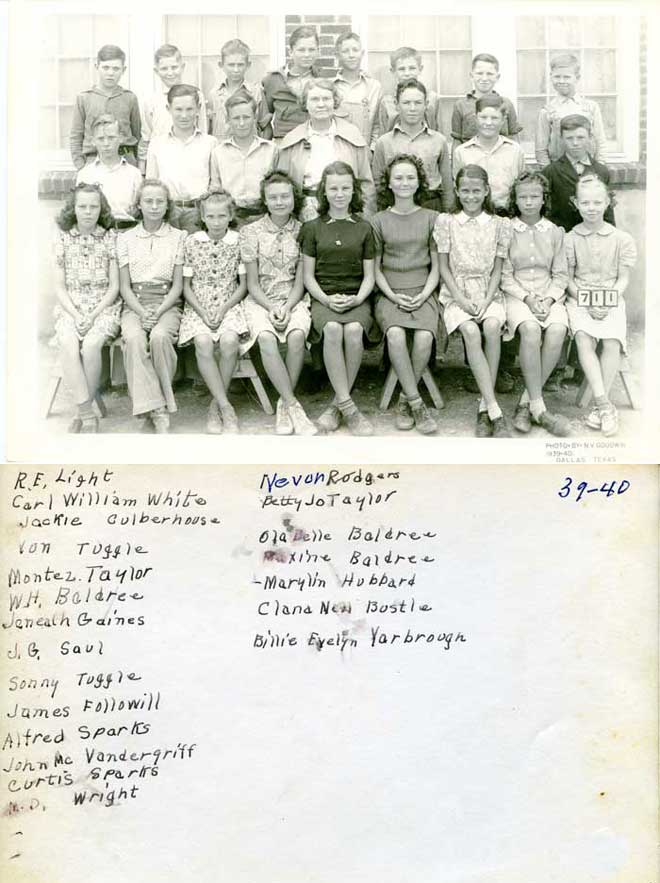 711
PHOTO•BY•N.V.GOODWIN
1939-40
DALLAS, TEXAS
39-40
R.E. Light
Carl William White
Jackie Culberhouse
Von Tuggle
Montez Taylor
W.H. Baldree
Janeath Gaines
J.G. Saul
Sonny Tuggle
James Followill
Alfred Sparks
John Mc Vandergriff
Curtis Sparks
M.D. Wright
Nevon Rodgers
Betty Jo Taylor
Ola Belle Baldree
Maxine Baldree
-Marylin Hubbard
Clana Nell Bustle
Billie Evelyn Yarbrough